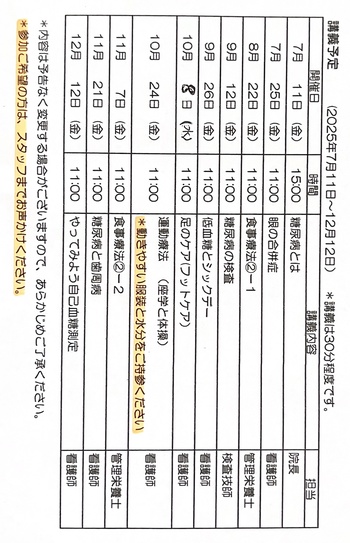 講義予定 (2025年7月11日～12月12日) *講義は30分程度です。
開催日 時間 講義内容 担当
7月 11日 (金) 15:00 糖尿病とは 院長
7月 25日 (金) 11:00 眼の合併症 看護師
8月 22日 (金) 11:00 食事療法②－1 管理栄養士
9月 12日 (金) 11:00 糖尿病の検査 検査技師
9月 26日 (金) 11:00 低血糖とシックデー 看護師
10月 8日 (水) 11:00 足のケア(フットケア) 看護師
10月 24日 (金) 11:00 運動療法 (座学と体操) 看護師
*動きやすい服装と水分をご持参ください
11月 7日 (金) 11:00 食事療法②－2 管理栄養士
11月 21日 (金) 11:00 糖尿病と歯周病 看護師
12月 12日 (金) 11:00 やってみよう自己血糖測定 看護師
*内容は予告なく変更する場合がございますので、あらかじめご了承ください。
*参加ご希望の方は、スタッフまでお声かけください。